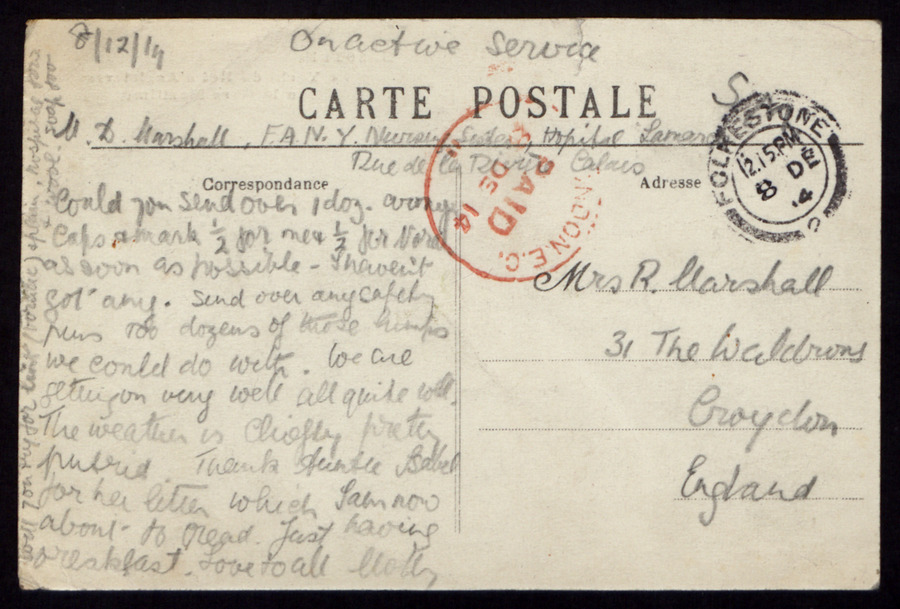 8/12/14
On active Service
CARTE POSTALE
M. D. Marshall, F.A.N.Y. Nursing Sister, Hopital Lamarck
Rue de la Rivière Calais
Correspondance
Adresse
Could you send over 1 doz.
Caps & mark ½ for me & ½ for
as soon as possible - I haven't
got any. Send over any safety
pins too dozens of those
we could do with. We are
getting on very well all quite well.
The weather is Chiefly pretty
putrid Thank Auntie
for her letter which I am now
about to read. Just having
breakfast. Love to all Molly
will you try for lint (boracic) & plain, hospital
& wool.
Mrs R. Marshall
31 The Waldrons
Croydon
England
FOLKESTONE
12.15 PM
8 DE
14
LONDON. E.C.
PAID
DE 14